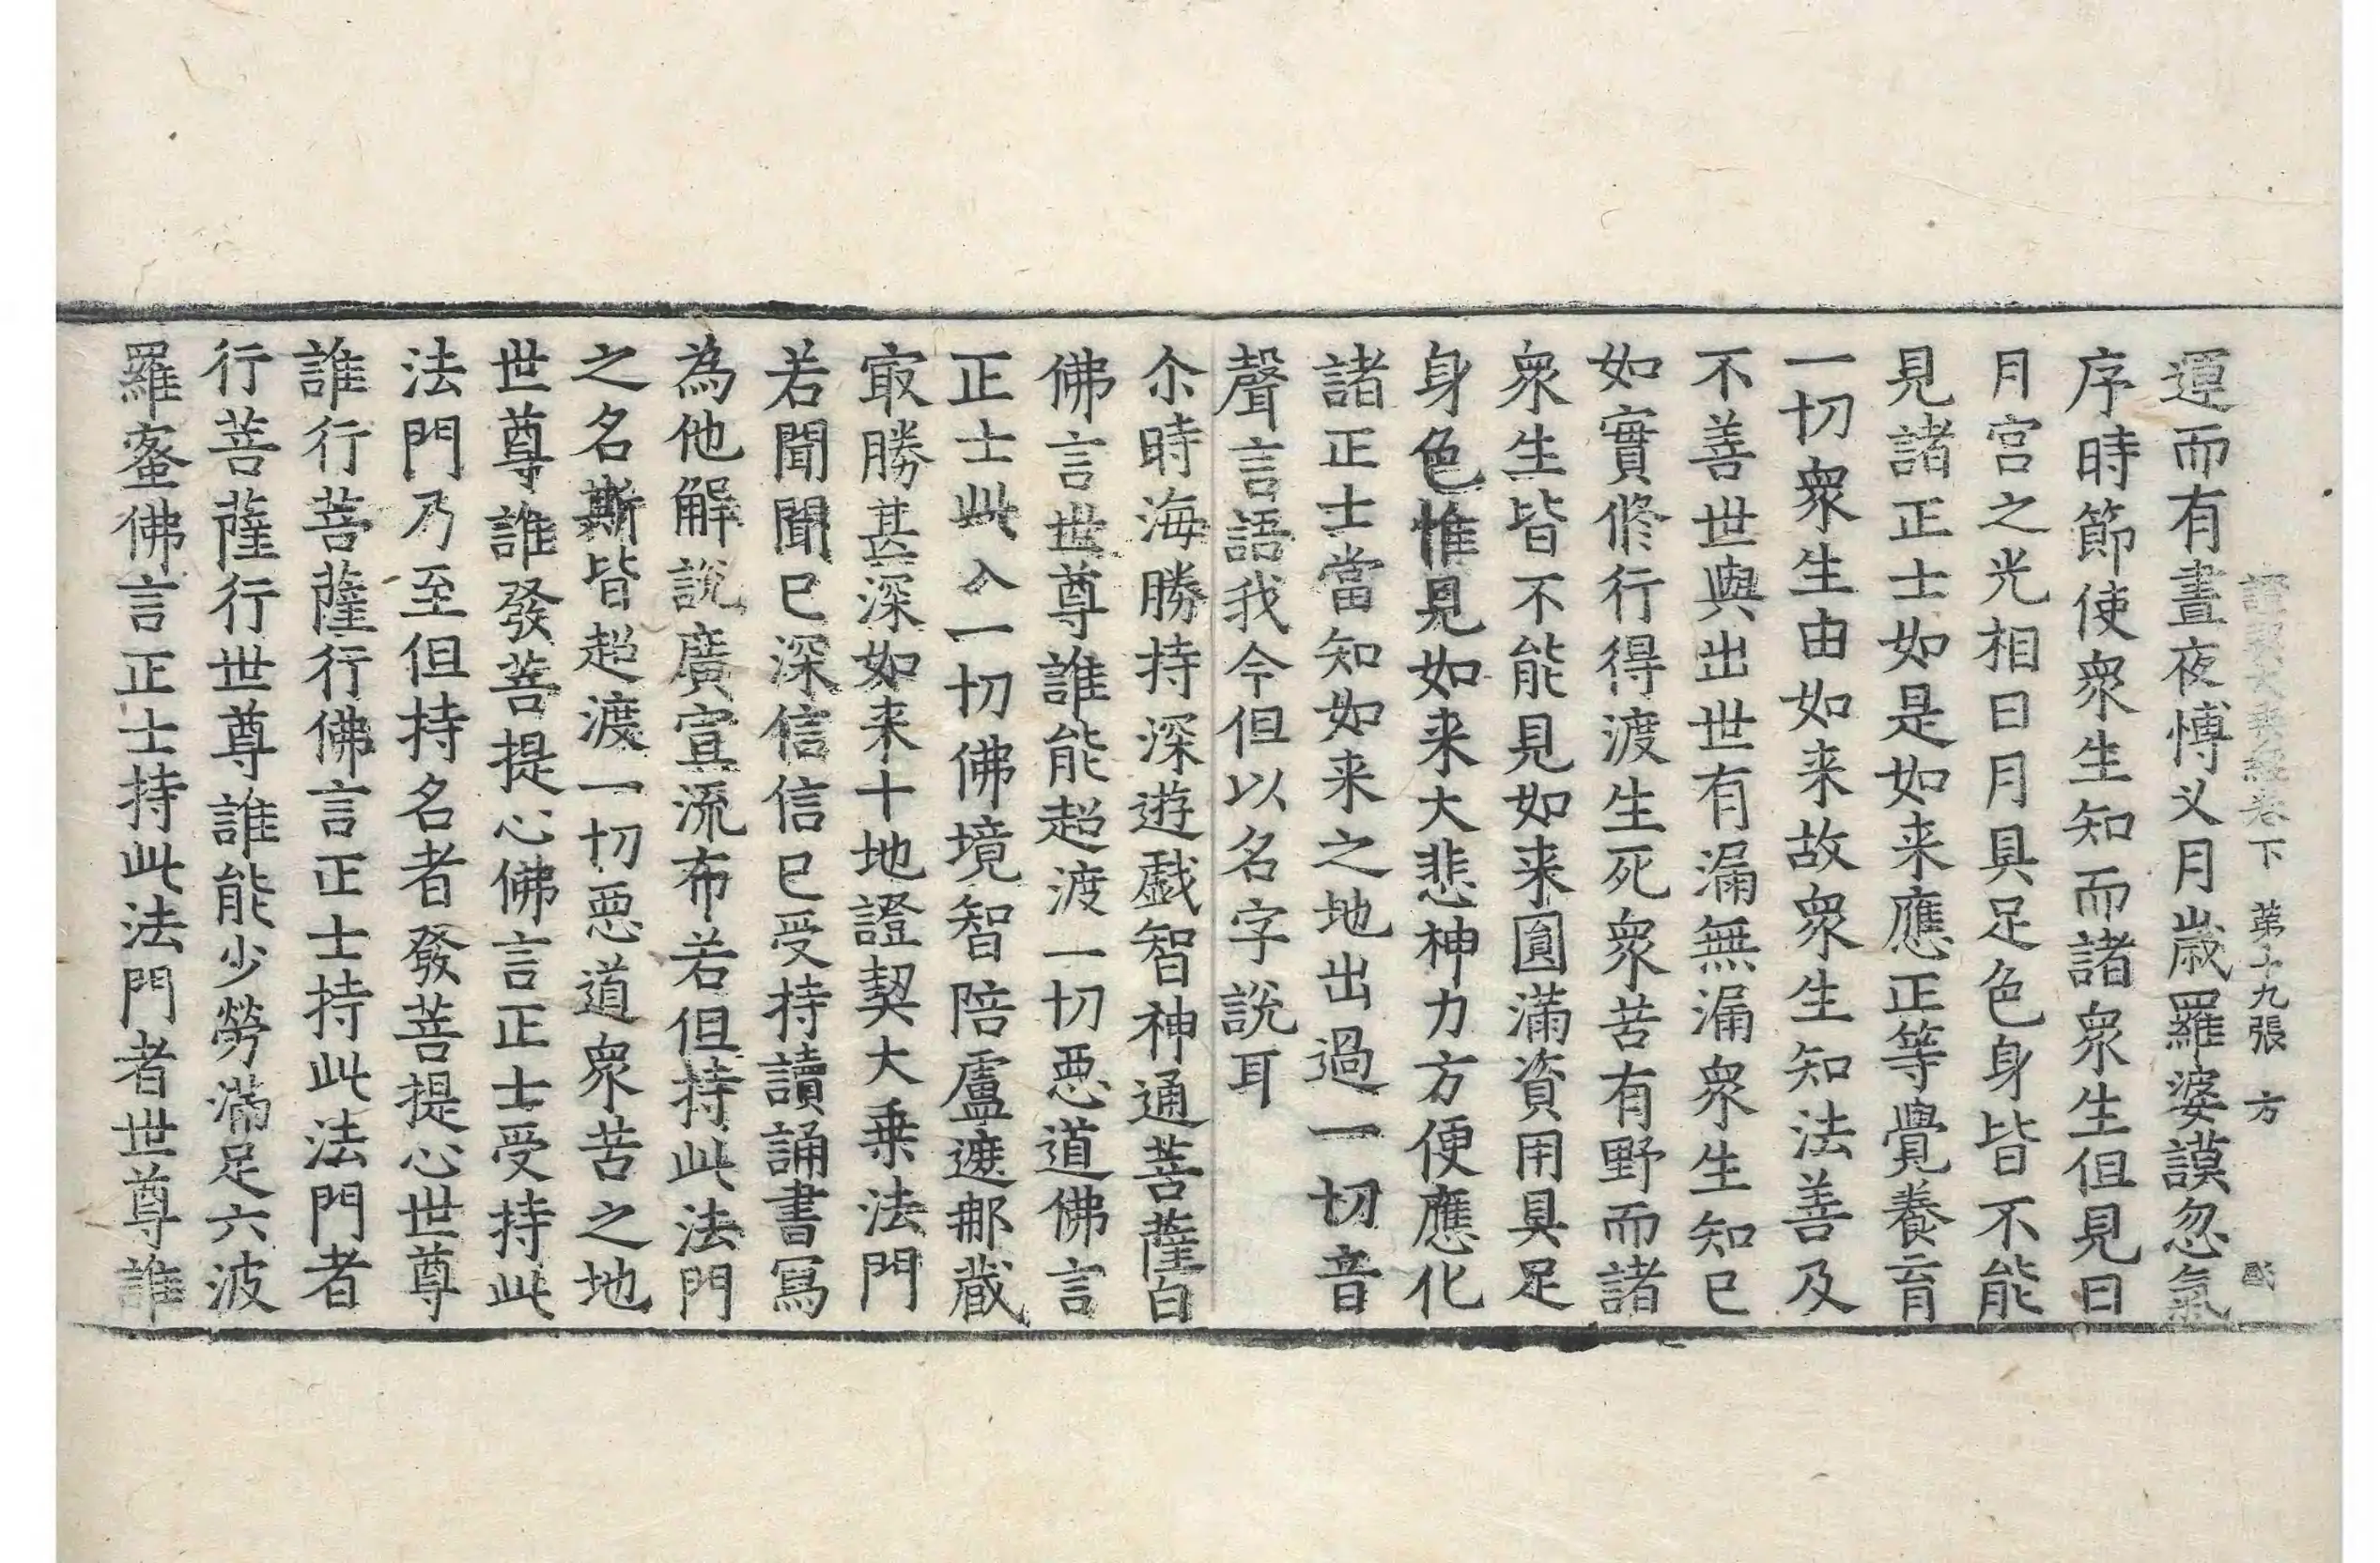 證契大乗經卷下 第十九張 方
運而有晝夜博乂月歲羅婆謨忽氣
序時節使衆生知而諸衆生但見日
月宮之光相日月具足色身皆不能
見諸正士如是如来應正等覺養育
一切衆生由如来故衆生知法善及
不善世與出世有漏無漏衆生知已
如實修行得渡生死衆苦有野而諸
衆生皆不能見如来圓滿資用具足
身色惟見如来大悲神力方便應化
諸正士當知如来之地出過一切音
聲言語我今但以名字說耳
尒時海勝持深遊戱智神通菩薩白
佛言世尊誰能超渡一切惡道佛言
正士此入一切佛境智陪盧遮那藏
㝡勝甚深如来十地證契大乗法門
若聞聞已深信信已受持讀誦書冩
為他解說廣宣流布若但持此法門
之名斯皆超渡一切惡道衆苦之地
世尊誰發菩提心佛言正士受持此
法門乃至但持名者發菩提心世尊
誰行菩薩行佛言正士持此法門者
行菩薩行世尊誰能少勞滿足六波
羅蜜佛言正士持此法門者世尊誰